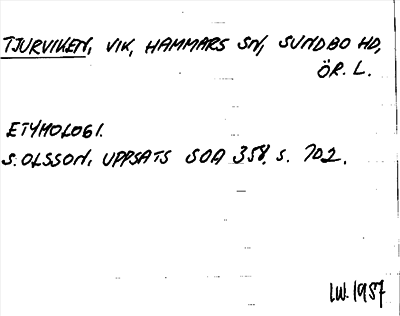 TJURVIKEN, VIK, HAMMARS SN, SUNDBO HD,
ÖR. L.
ETYMOLOGI.
S. OLSSON, UPPSATS SOA 358. S. 702.
I.W. 1957